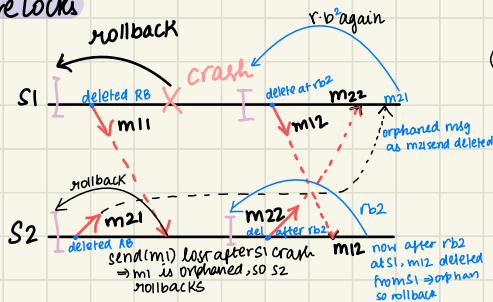 velocks
rollback
r.b² again
crash
S1
deleted RB
delete at rb2
m22
m21
m11
m12
orphaned msg
as m21 send deleted
rollback
m21
m22
rb2
S2
deleted RB
del after rb2
m12
send(m1) lost after S1 crash
⇒ m1 is orphaned, so S2
rollbacks
now after rb2
at S1, m12 deleted
from S1 ⇒ orphan
so rollback